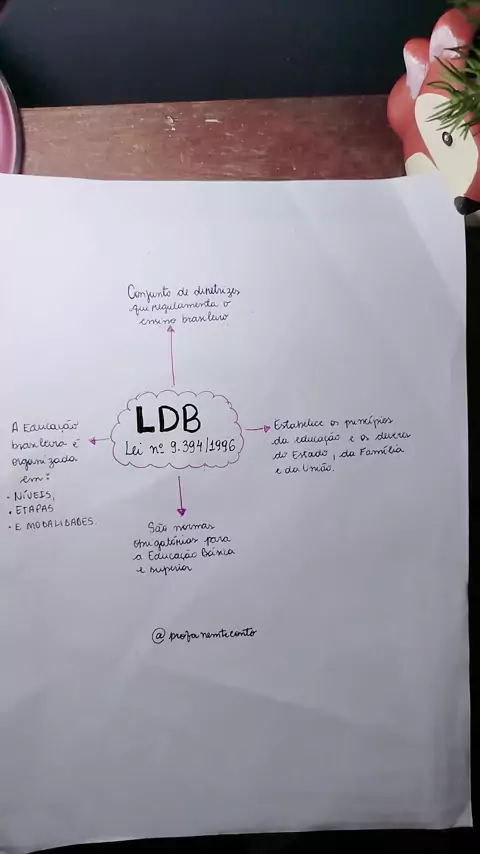 Conjunto de diretrizes
que regulamenta o
ensino brasileiro
LDB
Lei nº 9.394/1996
A Educação
brasileira é
organizada
em:
• NÍVEIS,
• ETAPAS
• E MODALIDADES.
Estabelece os princípios
da educação e os deveres
do Estado, da Família
e da União.
São normas
obrigatórias para
a Educação Básica
e superior
@profanemteconto